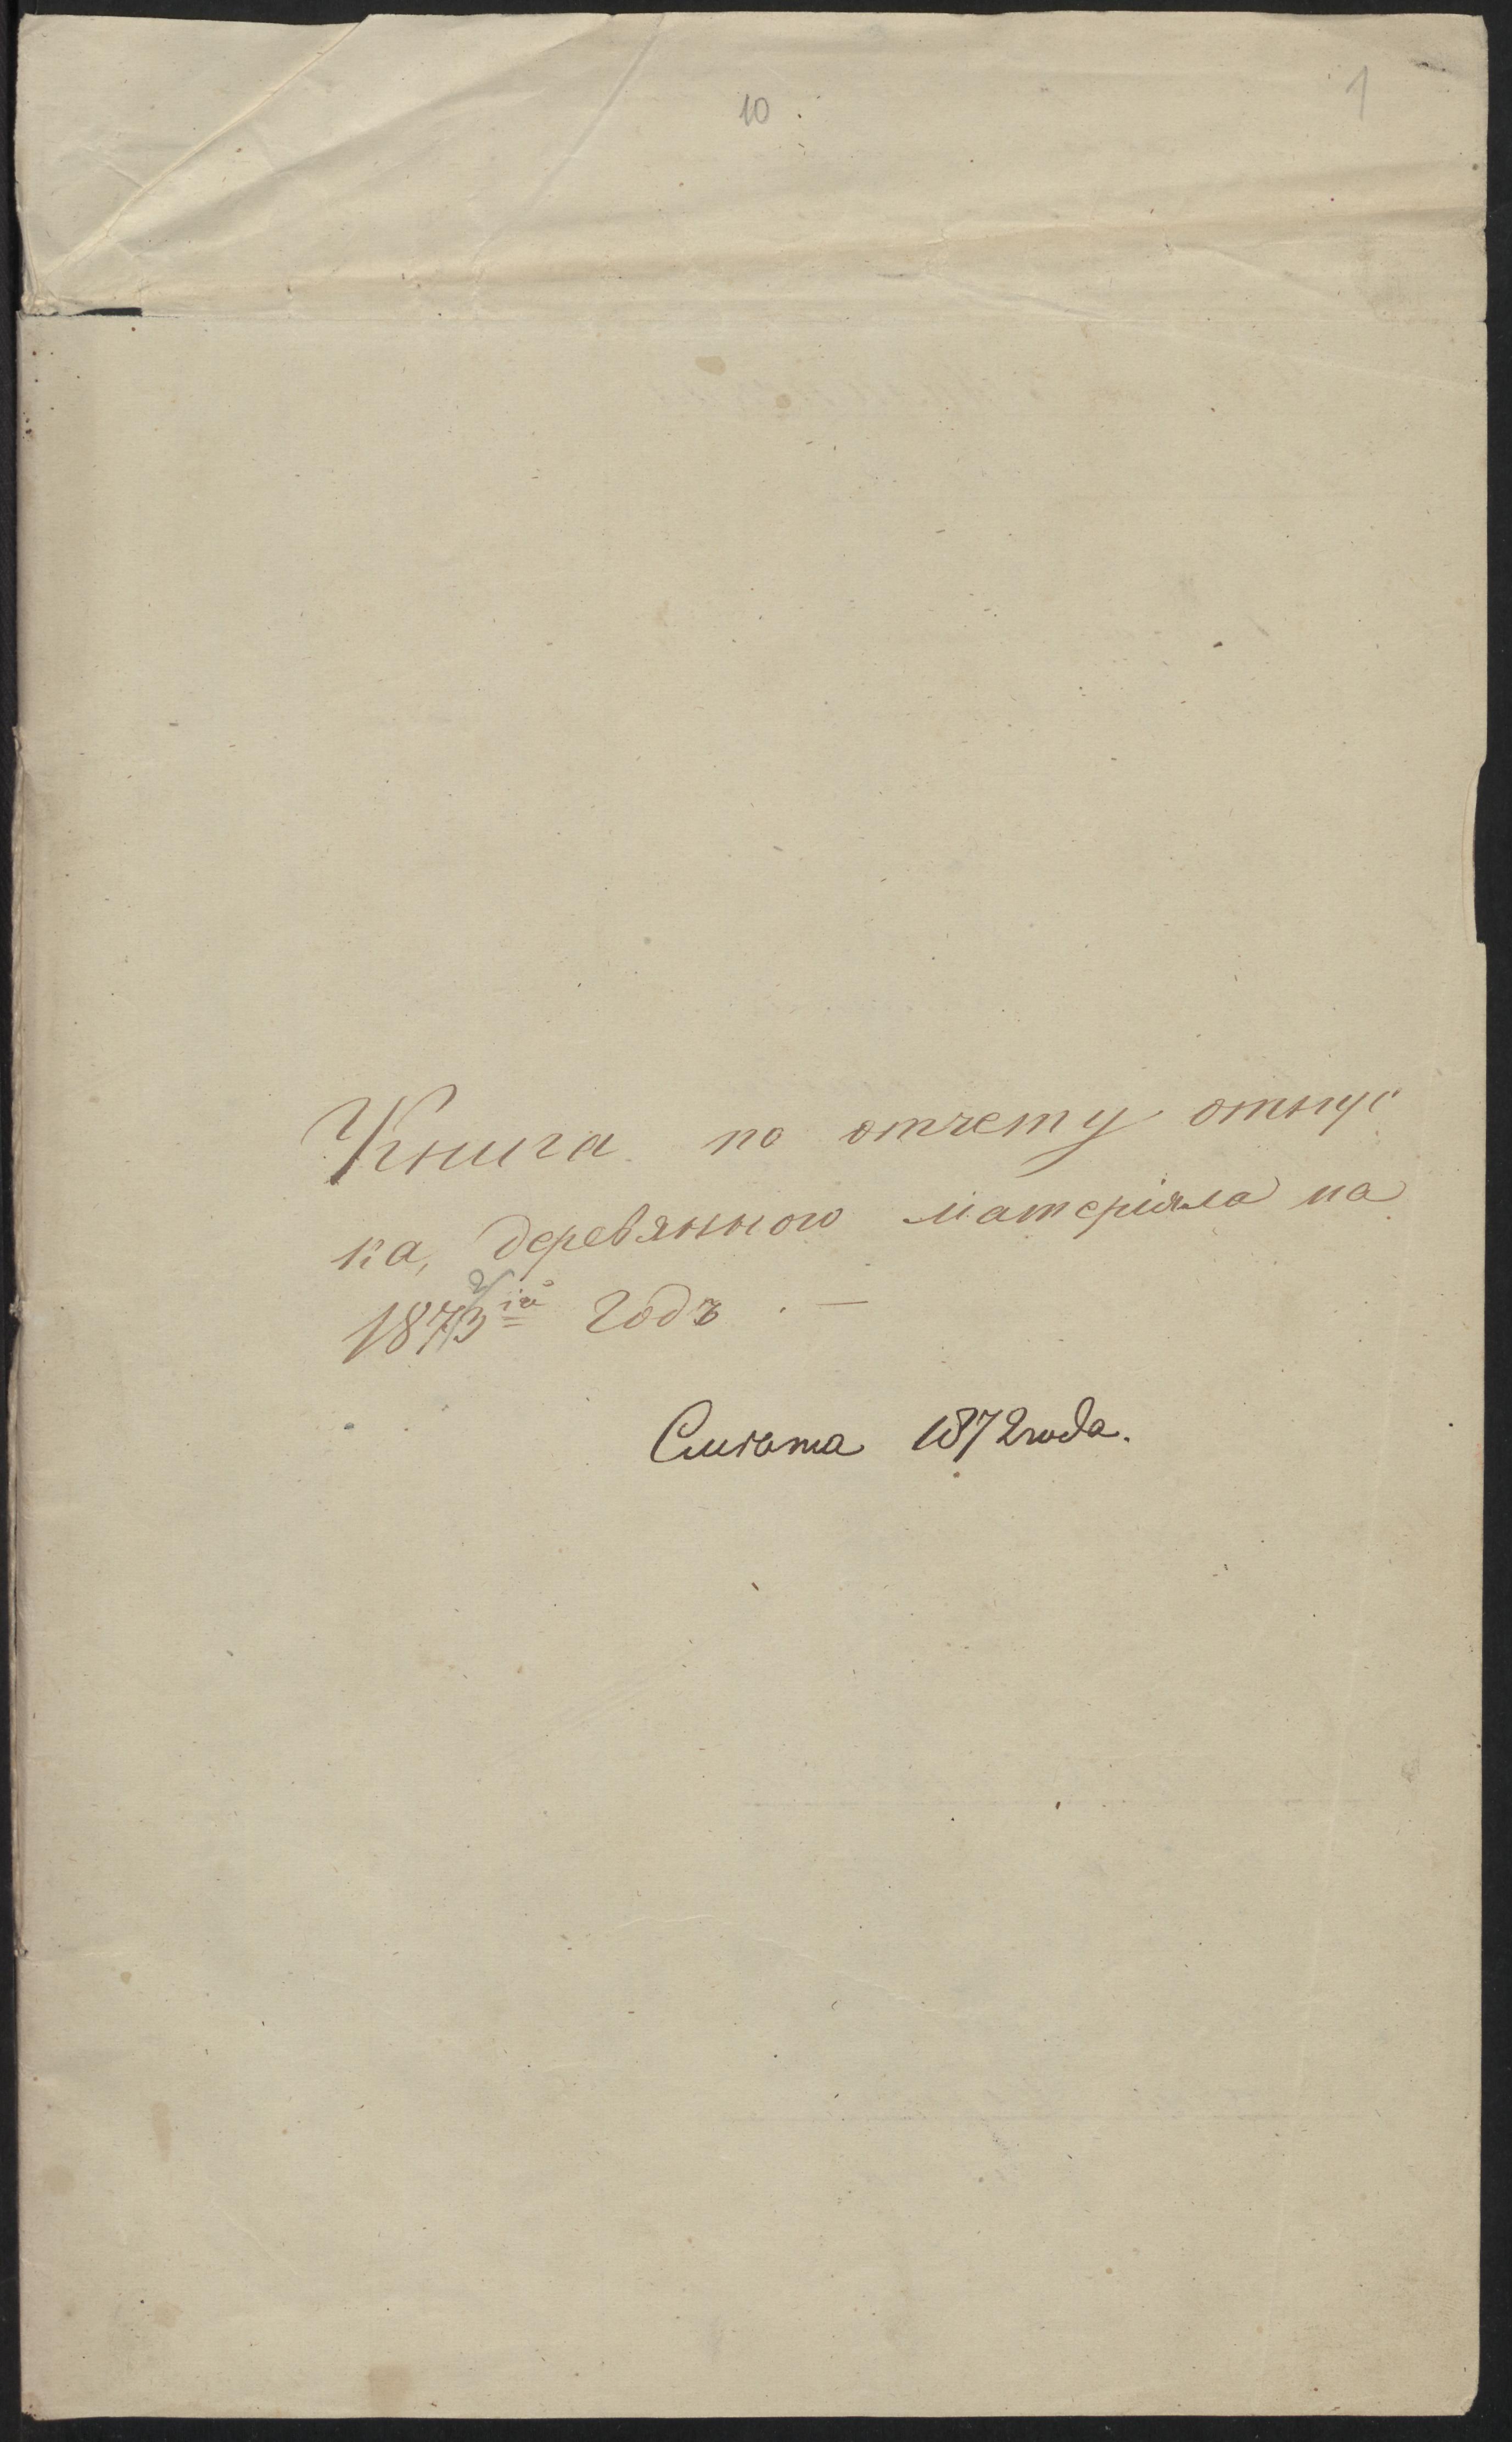 10.
1
Книга по отчету отпус
ка, деревяннаго матеріяла на
1873/2 ій годъ. —
Смѣта 1872 года.